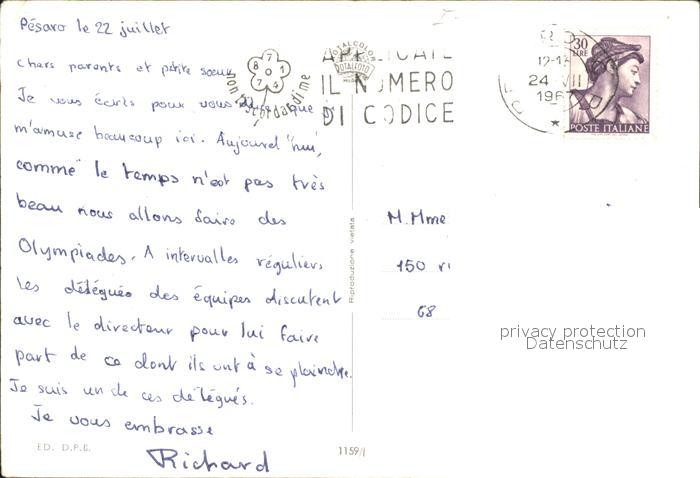 Pésaro le 22 juillet
Chers parents et petite soeur
Je vous écris pour vous dire que je
m'amuse beaucoup ici. Aujourd'hui,
comme le temps n'est pas très
beau nous allons faire des
Olympiades. A intervalles réguliers
les délégués des équipes discutent
avec le directeur pour lui faire
part de ce dont ils ont à se plaindre.
Je suis un de ces délégués.
Je vous embrasse
Richard
ED. D.P.B.
1159/1
Riproduzione vietata
non ti scordar di me
8 7 0 1 4 7
TOTALCOLOR
TOTALFOTO
IL NUMERO
DI CODICE
12-1
24 VII
196
30
LIRE
POSTE ITALIANE
M. Mme
150 r
68
privacy protection
Datenschutz